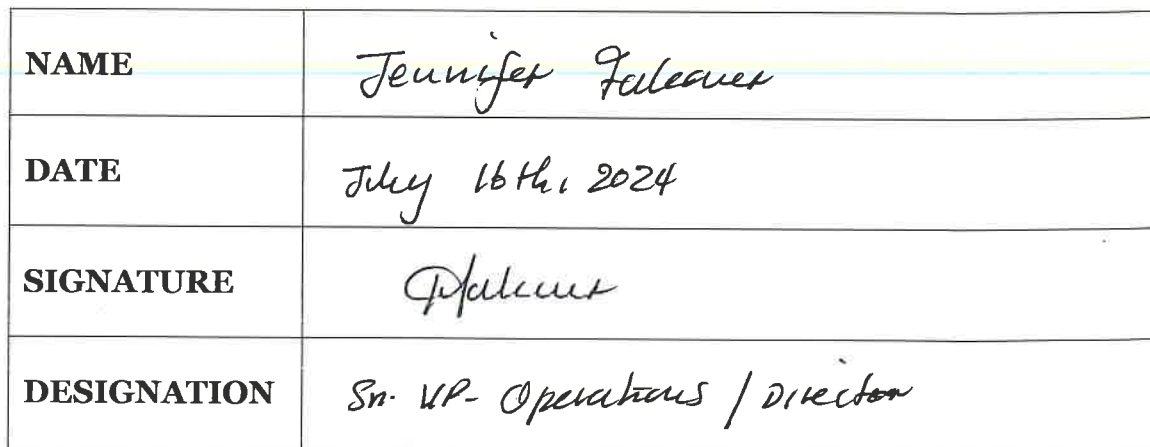 NAME Jennifer Falconer
DATE July 16th, 2024
SIGNATURE
DESIGNATION Sn. VP- Operations / Director